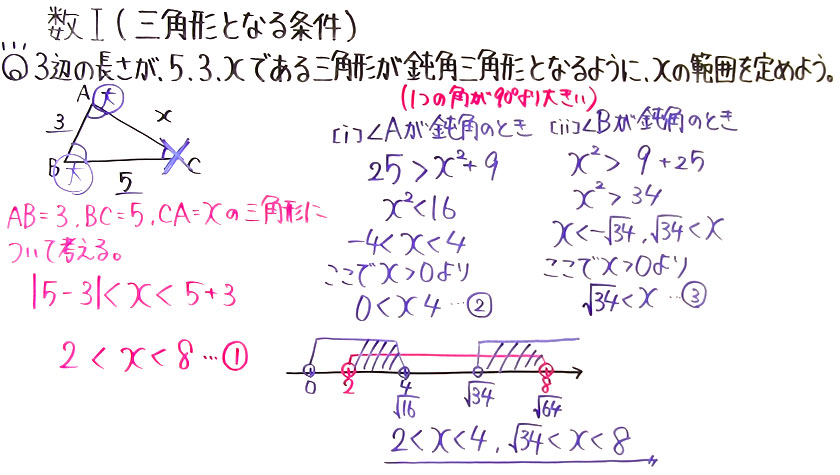 数Ⅰ(三角形となる条件)
◎3辺の長さが、5、3、xである三角形が鈍角三角形となるように、xの範囲を定めよう。
(1つの角が90°より大きい)
A 大
3
x
B 大
5
C
AB=3、BC=5、CA=xの三角形に
ついて考える。
|5-3|<x<5+3
2<x<8…①
[i]∠Aが鈍角のとき
25>x²+9
x²<16
-4<x<4
ここでx>0より
0<x4…②
[ii]∠Bが鈍角のとき
x²>9+25
x²>34
x<-√34、√34<x
ここでx>0より
√34<x…③
0 2 4 √34 8
√16 √64
2<x<4、√34<x<8